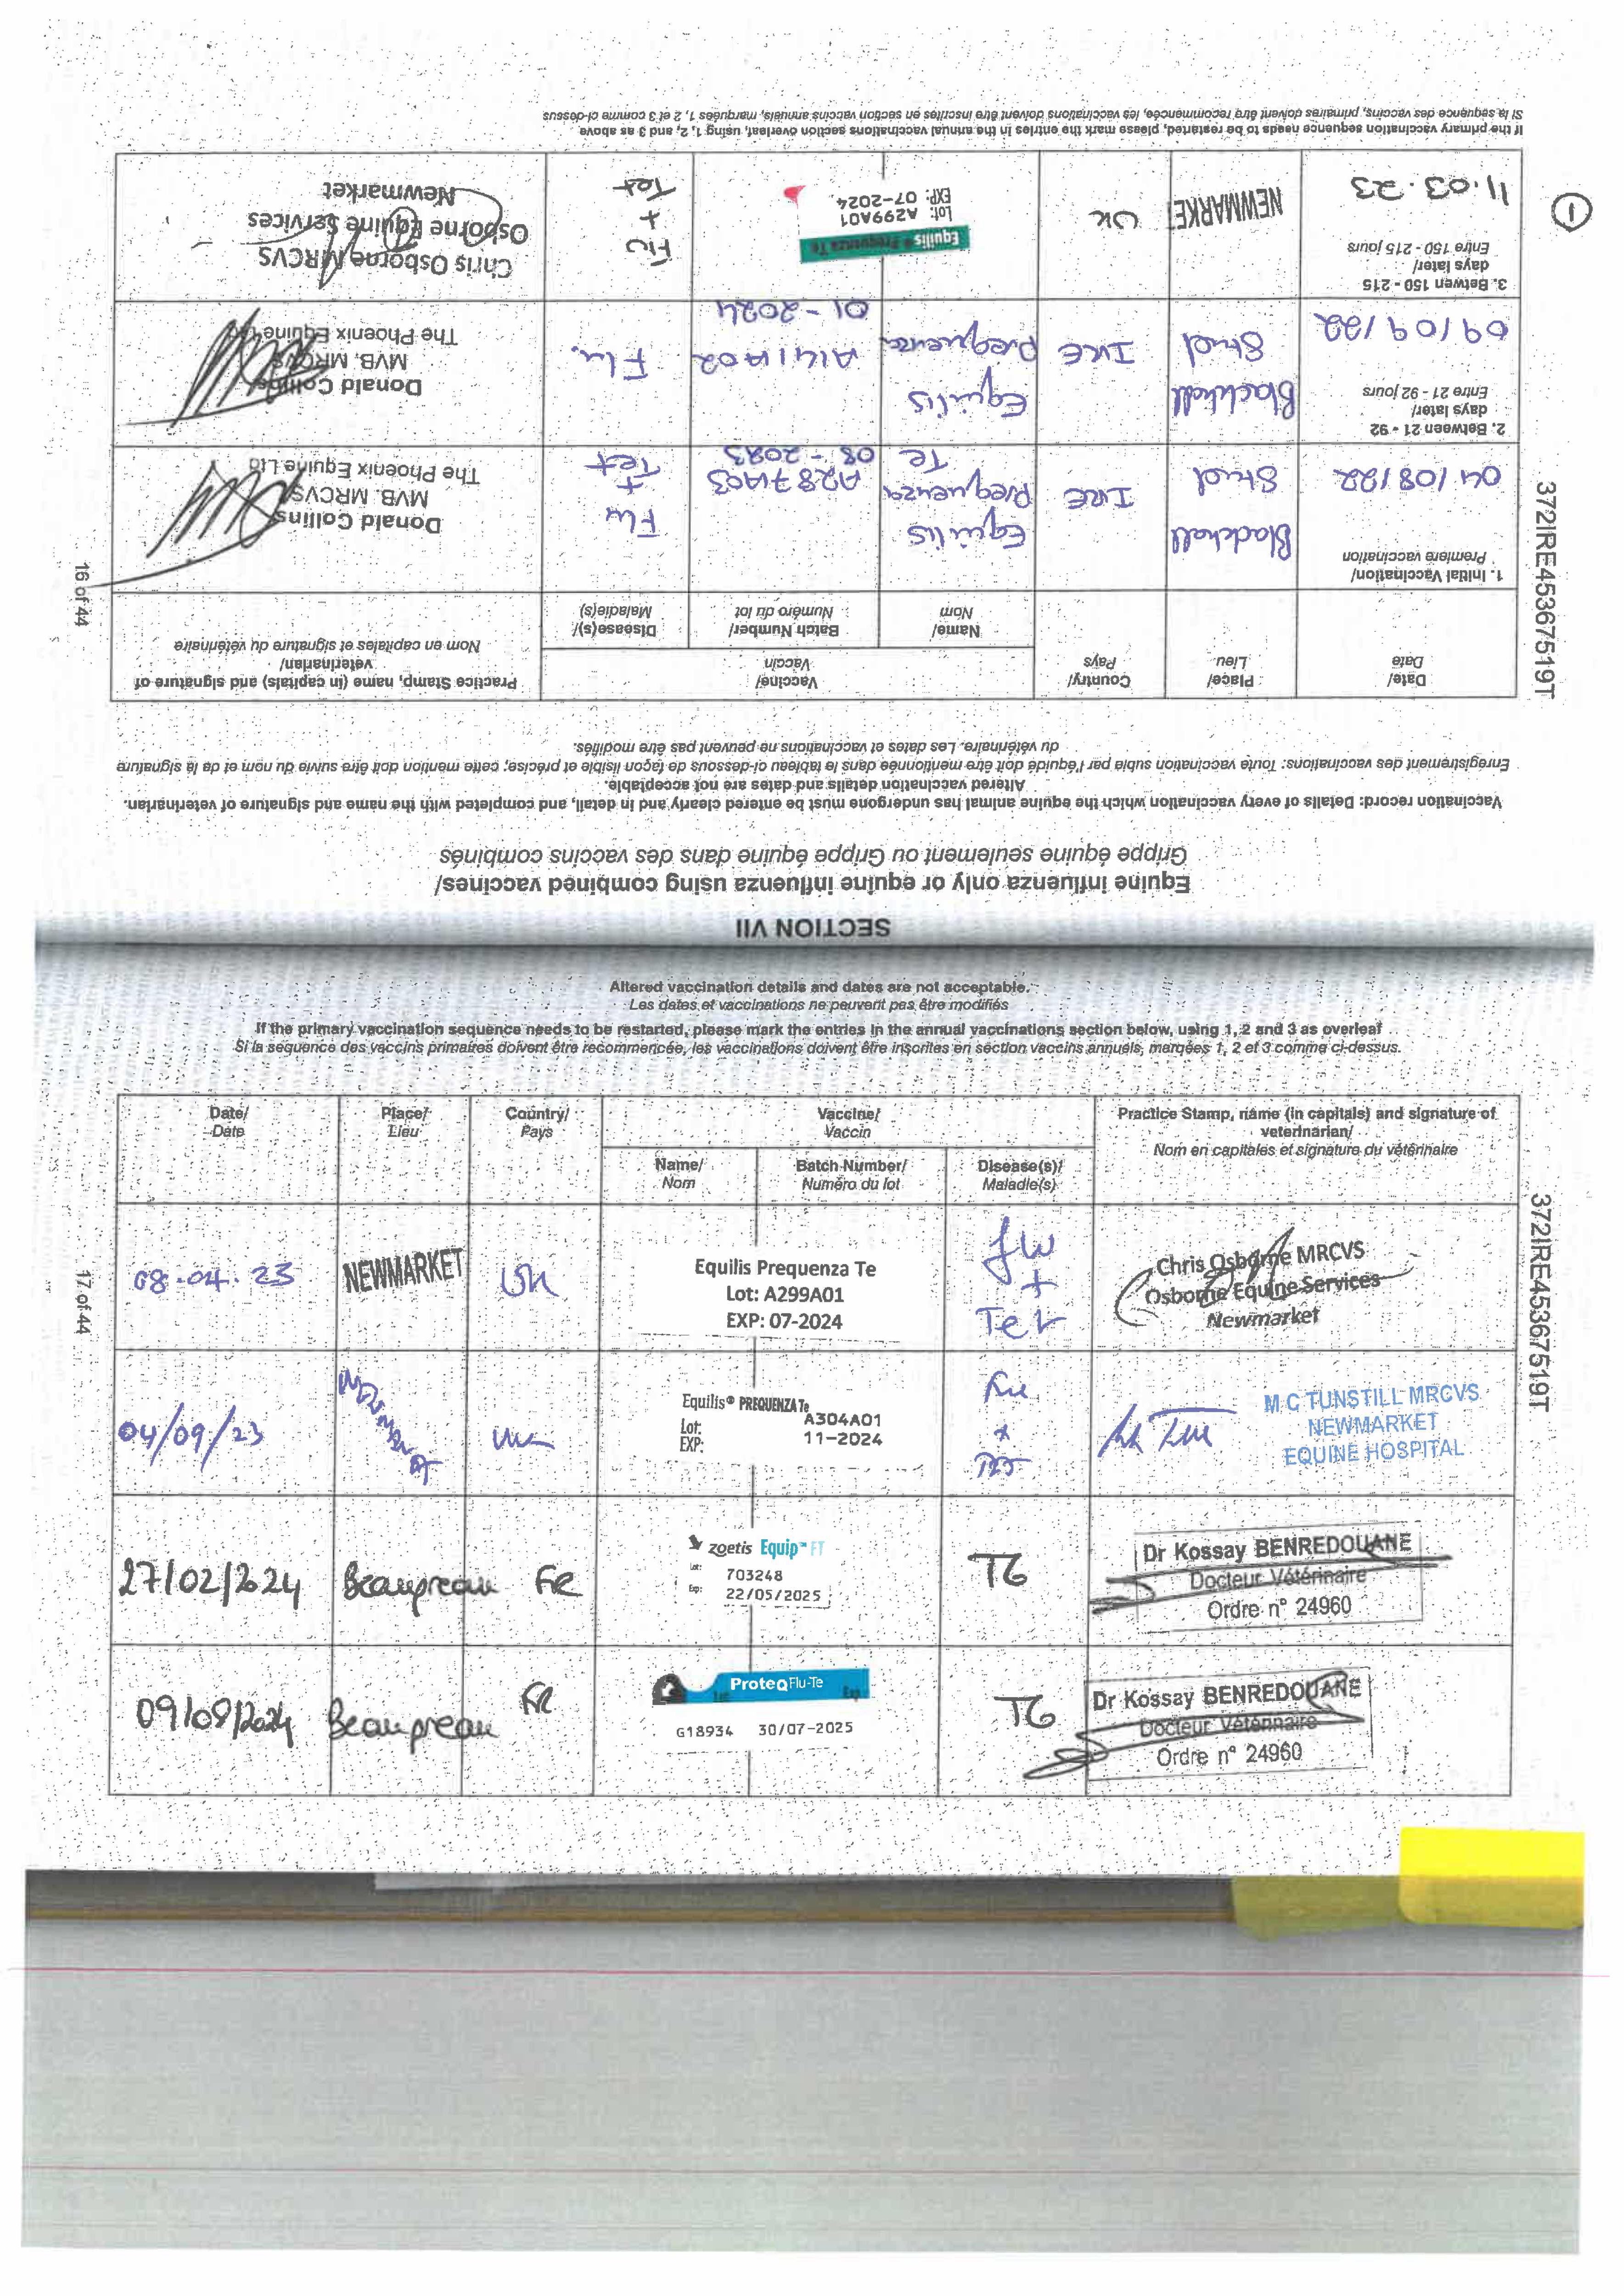 SECTION VII
Equine influenza only or equine influenza using combined vaccines/
Grippe équine seulement ou Grippe équine dans des vaccins combinés
Vaccination record: Details of every vaccination which the equine animal has undergone must be entered clearly and in detail, and completed with the name and signature of veterinarian.
Altered vaccination details and dates are not acceptable.
Enregistrement des vaccinations: Toute vaccination subie par l'équidé doit être mentionnée dans le tableau ci-dessous de façon lisible et précise; cette mention doit être suivie du nom et de la signature
du vétérinaire. Les dates et vaccinations ne peuvent pas être modifiés.
Date/ Place/ Country/ Vaccine/ Practice Stamp, name (in capitals) and signature of
Date Lieu Pays Vaccin veterinarian/
Name/ Batch Number/ Disease(s)/ Nom en capitales et signature du vétérinaire
Nom Numéro du lot Maladie(s)
1. Initial Vaccination/
Première vaccination
04/08/22 Blackhall Stud IRE Equilis Prequenza Te A287A03 08-2023 Flu + Tet
Donald Collins
MVB. MRCVS
The Phoenix Equine Ltd
2. Between 21 - 92
days later/
Entre 21 - 92 jours
09/09/22 Blackhall Stud IRE Equilis Prequenza A141A02 01-2024 Flu.
Donald Collins
MVB. MRCVS
The Phoenix Equine Ltd
3. Betwen 150 - 215
days later/
Entre 150 - 215 jours
11.03.23 NEWMARKE UK
Equilis Prequenza Te
Lot: A299A01
EXP: 07-2024
Flu + Tet
Chris Osborne MRCVS
Osborne Equine Services
Newmarket
1
If the primary vaccination sequence needs to be restarted, please mark the entries in the annual vaccinations section overleaf, using 1, 2, and 3 as above
Si la séquence des vaccins, primaires doivent être recommencée, les vaccinations doivent être inscrites en section vaccins annuels, marquées 1, 2 et 3 comme ci-dessus
372IRE45367519T
16 of 44
Altered vaccination details and dates are not acceptable.
Les dates et vaccinations ne peuvent pas être modifiés
If the primary vaccination sequence needs to be restarted, please mark the entries in the annual vaccinations section below, using 1, 2 and 3 as overleaf
Si la sequence des vaccins primaires doivent être recommencée, les vaccinations doivent être inscrites en section vaccins annuels, marqées 1, 2 et 3 comme ci-dessus.
Date/ Place/ Country/ Vaccine/ Practice Stamp, name (in capitals) and signature of
Date Lieu Pays Vaccin veterinarian/
Name/ Batch Number/ Disease(s)/ Nom en capitales et signature du vétérinaire
Nom Numéro du lot Maladie(s)
08.04.23 NEWMARKET UK
Equilis Prequenza Te
Lot: A299A01
EXP: 07-2024
flu + Tet
Chris Osborne MRCVS
Osborne Equine Services
Newmarket
04/09/23 NEWMARKET UK
Equilis® PREQUENZA Te
Lot: A304A01
EXP: 11-2024
Flu + TET
M C TUNSTILL MRCVS
NEWMARKET
EQUINE HOSPITAL
27/02/2024 Beaupreau FR
zoetis Equip™ FT
Lot: 703248
Exp: 22/05/2025
TG
Dr Kossay BENREDOUANE
Docteur Vétérinaire
Ordre n° 24960
09/08/2024 Beaupreau FR
ProteqFlu-Te
Lot: Exp
G18934 30/07-2025
TG
Dr Kossay BENREDOUANE
Docteur Vétérinaire
Ordre n° 24960
372IRE45367519T
17 of 44